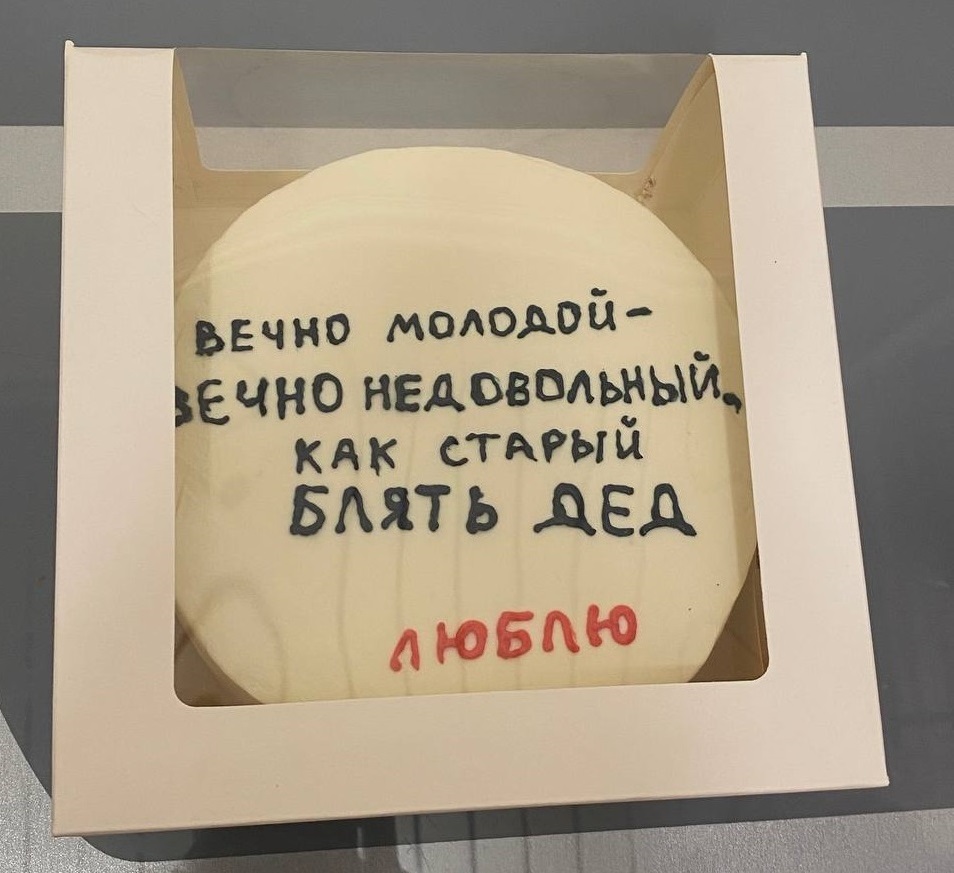 ВЕЧНО МОЛОДОЙ-
ВЕЧНО НЕДОВОЛЬНЫЙ,
КАК СТАРЫЙ
БЛЯТЬ ДЕД
ЛЮБЛЮ